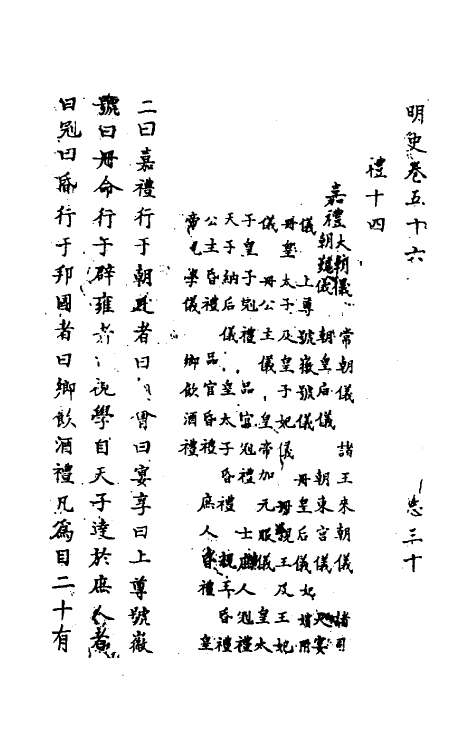 明史卷五十六 志三十
禮十四
嘉禮 大朝儀 常朝儀 諸王來朝儀 諸司
朝覲儀 朝皇后儀 朝東宮儀 大宴
儀 上尊號徽號儀 冊皇后儀 妃嬪附
冊皇太子及皇子妃儀 冊親王及王妃
儀 冊公主儀 皇帝加元服儀 皇太
子皇子冠禮 品官冠禮 士庶人冠禮
天子納后儀 皇太子昏禮 親王昏禮
公主昏禮 品官昏禮 庶人昏禮 皇
帝視學儀 鄉飲酒禮
二曰嘉禮行于朝廷者曰會曰宴享曰上尊號徽
號曰冊命行于辟雍者視學自天子達於庶人者
曰冠曰昏行于邦國者曰鄉飲酒禮凡為目二十有